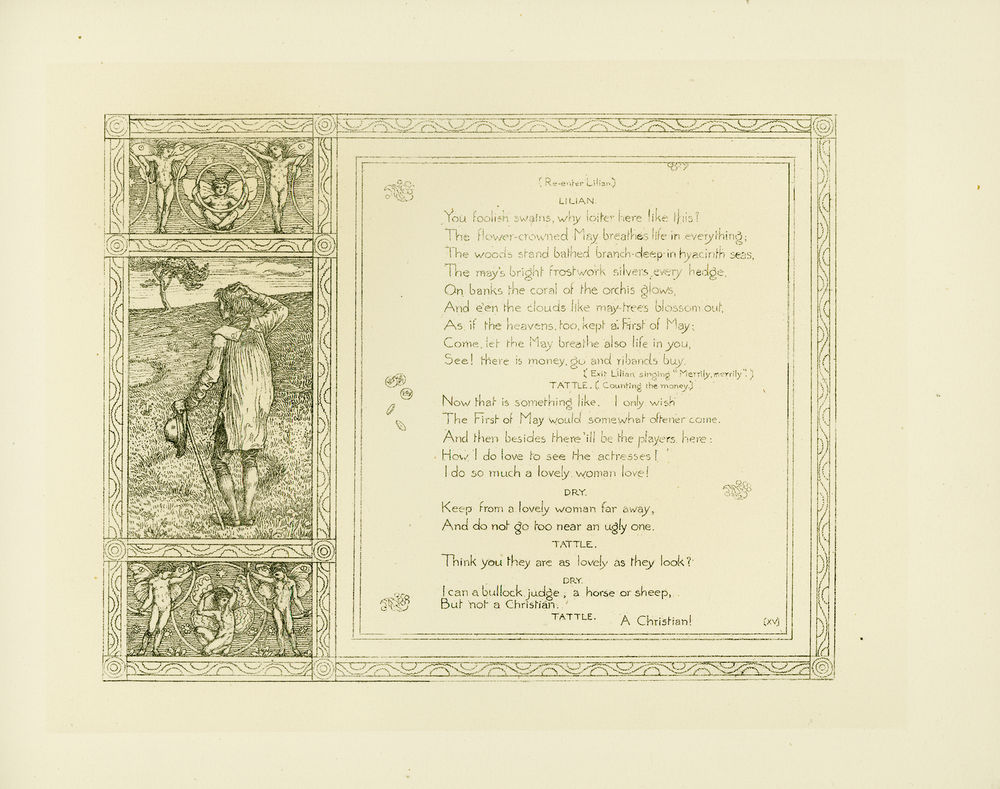 (Re-enter Lilian.)
LILIAN.
You foolish swains, why loiter here like this?
The flower-crowned May breathes life in everything;
The woods stand bathed branch-deep in hyacinth seas,
The may's bright frostwork silvers every hedge,
On banks the coral of the orchis glows,
And e'en the clouds like may-trees blossom out,
As if the heavens, too, kept a First of May;
Come, let the May breathe also life in you,
See! there is money, go and ribands buy.
(Exit Lilian singing "Merrily, merrily".)
TATTLE. (Counting the money.)
Now that is something like. I only wish
The First of May would somewhat oftener come.
And then besides there 'ill be the players here:
How I do love to see the actresses!
I do so much a lovely woman love!
DRY.
Keep from a lovely woman far away,
And do not go too near an ugly one.
TATTLE.
Think you they are as lovely as they look?
DRY.
I can a bullock judge, a horse or sheep,
But not a Christian.
TATTLE. A Christian!
(XV)